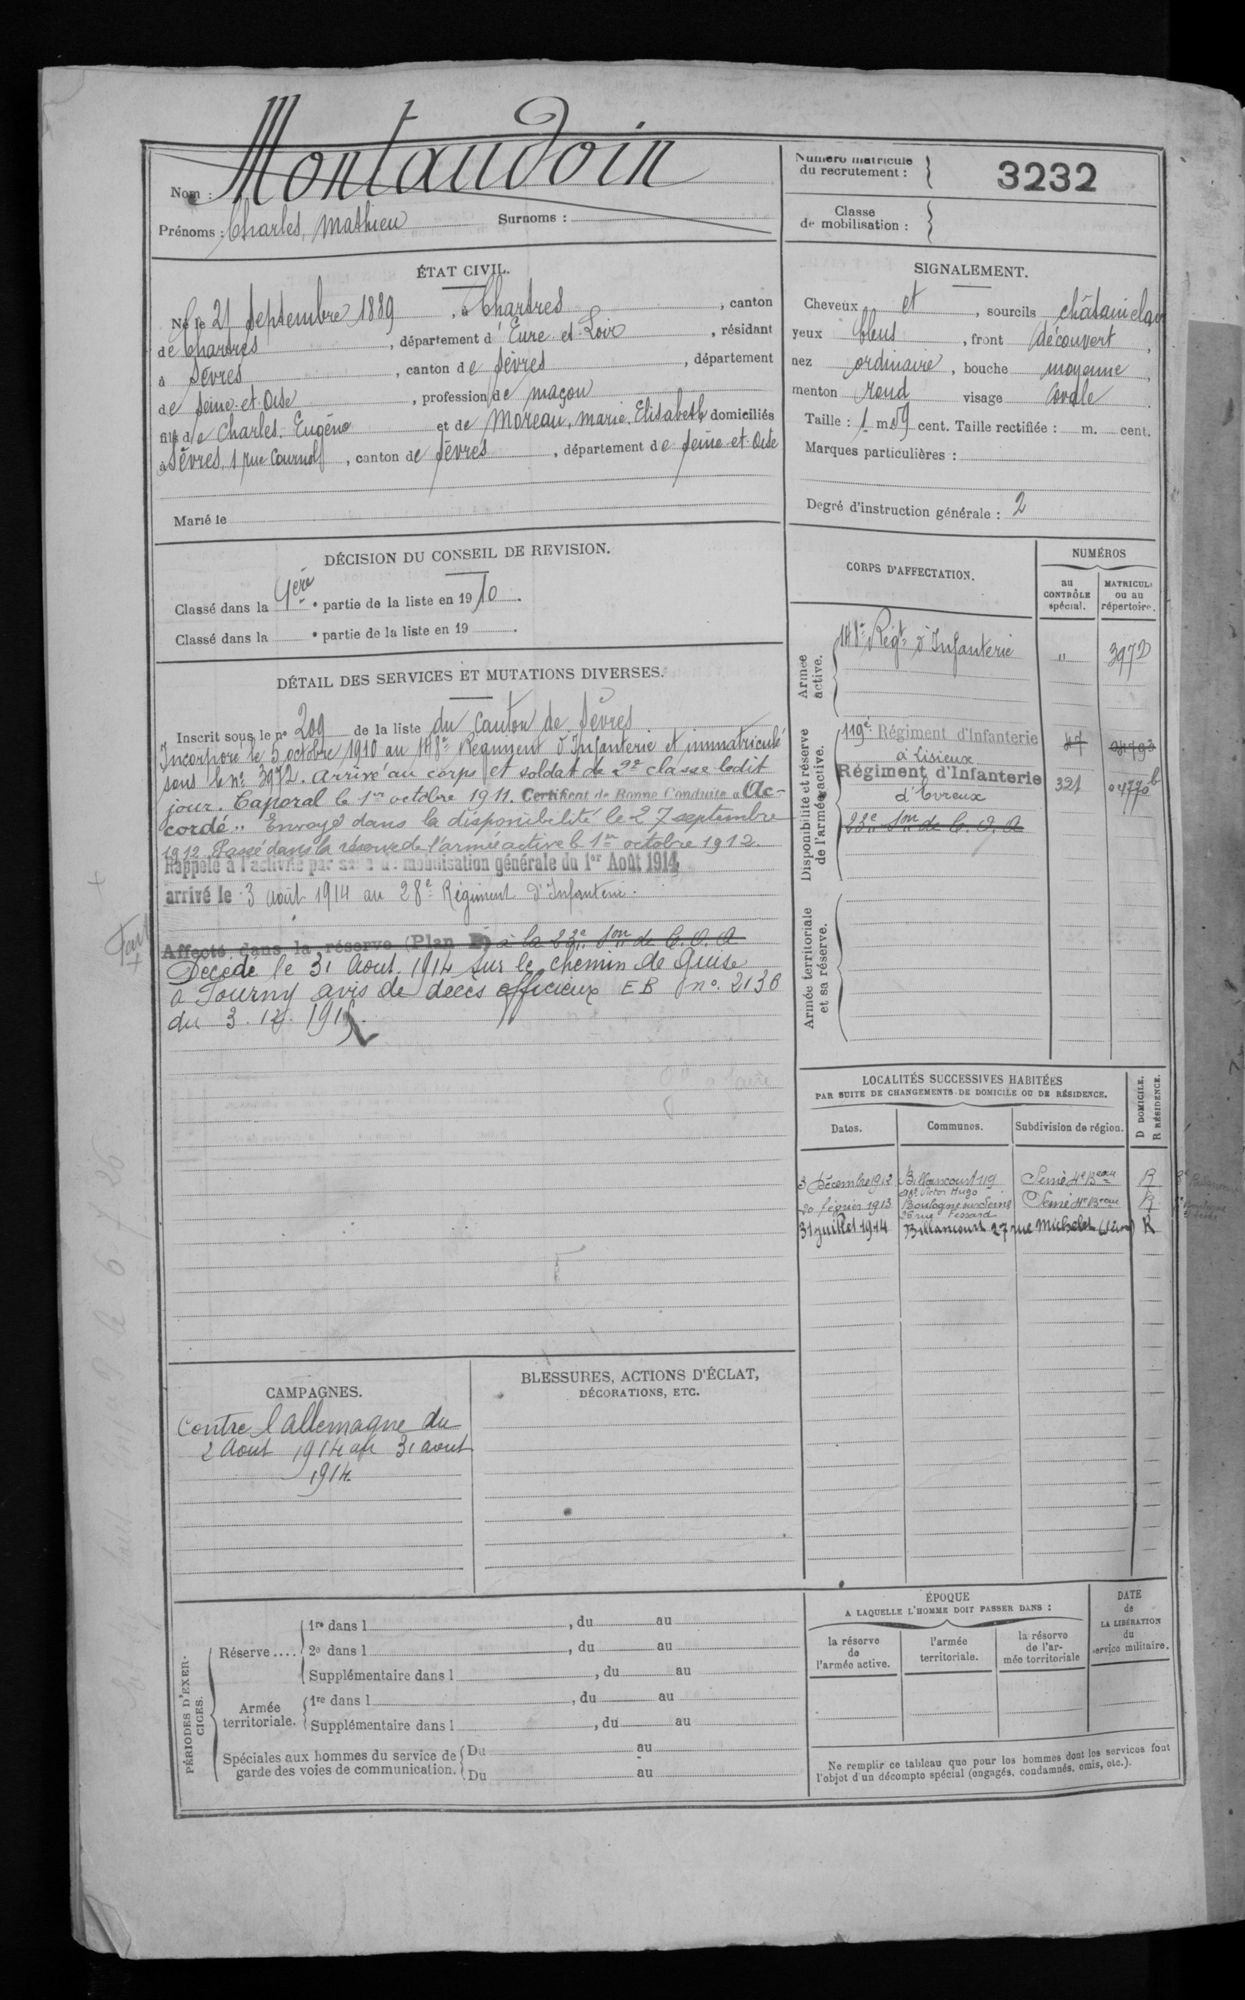 Nom : Montaudoin
Prénoms : Charles, Mathieu Surnoms :
Numéro matricule
du recrutement : 3232
Classe
de mobilisation :
ÉTAT CIVIL.
Né le 21 Septembre 1889, à Chartres, canton
de Chartres, département d'Eure-et-Loir, résidant
à Sèvres, canton de Sèvres, département
de Seine-et-Oise, profession de maçon
fils de Charles, Eugène et de Moreau, Marie, Elisabeth domiciliés
à Sèvres, 1 rue, canton de Sèvres, département de Seine-et-Oise
Marié le
SIGNALEMENT.
Cheveux et, sourcils châtain clair
yeux bleus, front découvert,
nez ordinaire, bouche moyenne,
menton rond visage ovale.
Taille : 1 m. cent. Taille rectifiée : m. cent.
Marques particulières :
Degré d'instruction générale : 2
DÉCISION DU CONSEIL DE REVISION.
Classé dans la 1ère partie de la liste en 1910.
Classé dans la e partie de la liste en 19 .
DÉTAIL DES SERVICES ET MUTATIONS DIVERSES.
Inscrit sous le n° 209 de la liste du Canton de Sèvres
Incorporé le 5 octobre 1910 au 148e Régiment d'Infanterie et immatriculé
sous le n° 3972. Arrivé au corps et soldat de 2e classe ledit
jour. Caporal le 1er octobre 1911. Certificat de Bonne Conduite Ac-
cordé. Envoyé dans la disponibilité le 27 septembre
1912. Passé dans la réserve de l'armée active le 1er octobre 1912.
Rappelé à l'activité par suite de mobilisation générale du 1er Août 1914
arrivé le 3 août 1914 au 28e Régiment d'Infanterie.
Affecté dans la réserve (Plan à la 23e Son de C.O.A
Décédé le 31 Aout 1914 sur le chemin de Guise
à Tourny avis de décès officieux EB n° 2136
du 3.12.
CORPS D'AFFECTATION.
NUMÉROS
au
CONTRÔLE
spécial.
MATRICULE
ou au
répertoire.
Armée
active.
148e Régt d'Infanterie " 3972
Disponibilité et réserve
de l'armée active.
119e Régiment d'Infanterie
à Lisieux
Régiment d'Infanterie 321
d'Evreux
23e Son de C.O.A
Armée territoriale
et sa réserve.
LOCALITÉS SUCCESSIVES HABITÉES
PAR SUITE DE CHANGEMENTS DE DOMICILE OU DE RÉSIDENCE.
Dates. Communes. Subdivision de région. D DOMICILE. R RÉSIDENCE.
3 Décembre 1912 Billancourt 119 Seine 4e Beau R
Victor Hugo
20 février 1913 Boulogne sur Seine Seine 4e Beau R
rue Fessard
31 juillet 1914 Billancourt 27 rue Michelet R
CAMPAGNES.
Contre l'allemagne du
2 Aout 1914 au 31 aout
1914.
BLESSURES, ACTIONS D'ÉCLAT,
DÉCORATIONS, ETC.
PÉRIODES D'EXERCICES.
Réserve....
1re dans l , du au
2e dans l , du au
Supplémentaire dans l , du au
Armée
territoriale.
1re dans l , du au
Supplémentaire dans l , du au
Spéciales aux hommes du service de
garde des voies de communication.
Du au
Du au
ÉPOQUE
A LAQUELLE L'HOMME DOIT PASSER DANS :
la réserve
de
l'armée active.
l'armée
territoriale.
la réserve
de l'ar-
mée territoriale
DATE
de
LA LIBÉRATION
du
service militaire.
Ne remplir ce tableau que pour les hommes dont les services font
l'objet d'un décompte spécial (engagés, condamnés, omis, etc.).